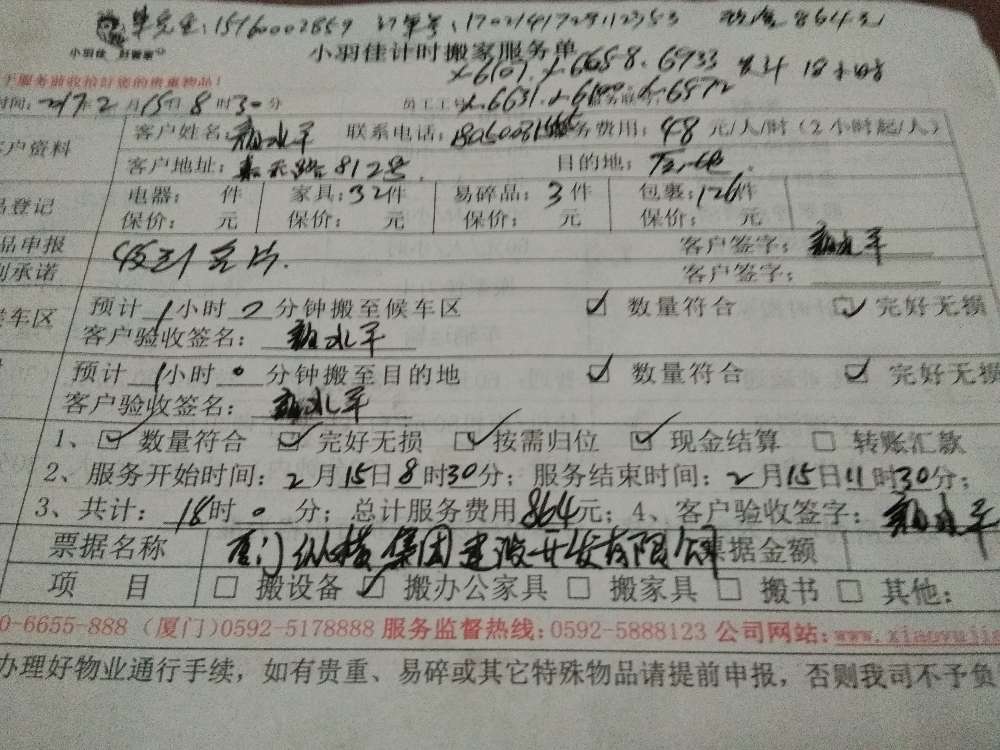 单先生:15160002859 订单号:
864元
小羽佳 好管家 小羽佳计时搬家服务单
X6101. X6658. 6933 共计 18小时
于服务前收拾好您的贵重物品!
X6631. X6872
时间: 2017年2月15日8时30分 员工工号
客户资料 客户姓名: 联系电话: 服务费用: 48 元/人/时(2小时起/人)
客户地址: 812号. 目的地:
品登记 电器: 件 家具: 32件 易碎品: 3件 包裹: 126件
保价: 元 保价: 元 保价: 元 保价: 元
品申报 收到名片. 客户签字:
别承诺 客户签字:
候车区 预计1小时0分钟搬至候车区 ☑ 数量符合 ☑ 完好无损
客户验收签名:
预计1小时0分钟搬至目的地 ☑ 数量符合 ☑ 完好无损
客户验收签名:
1、☑ 数量符合 ☑ 完好无损 ☑ 按需归位 ☑ 现金结算 □ 转账汇款
2、服务开始时间: 2月15日8时30分; 服务结束时间: 2月15日11时30分;
3、共计: 18时0分; 总计服务费用864元; 4、客户验收签字:
票据名称 厦门纵横集团建设开发有限公司 票据金额
项 目 □ 搬设备 ☑ 搬办公家具 □ 搬家具 □ 搬书 □ 其他:
0-6655-888 (厦门)0592-5178888 服务监督热线:0592-5888123 公司网站:www.xiaoyujia
办理好物业通行手续,如有贵重、易碎或其它特殊物品请提前申报,否则我司不予负